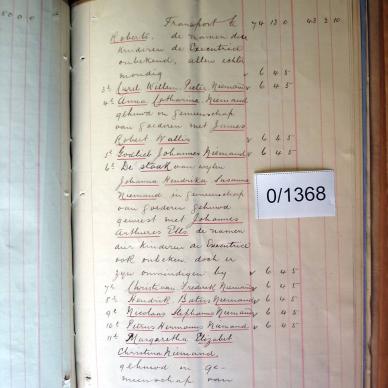 Transport £ 74 13 0 43 2 10
Roberts. de namen dier
kinderen de Executrice
onbekend, allen echter
mondig v 6 4 5
3e Carel Willem Pieter Niemand v 6 4 5
4e Anna Catharina Niemand
gehuwd in gemeenschap
van goederen met James
Robert Wallis v 6 4 5
5e Godlieb Johannes Niemand v 6 4 5
6e De staak van wylen
Johanna Hendrika Susanna
Niemand in gemeenschap
van goederen gehuwd
geweest met Johannes
Arthurus Ells de namen
dier kinderen de Executrice
ook onbekend doch er
zyn onmondigen by v 6 4 5
7e Christiaan Fredrik Niemand v 6 4 5
8e Hendrik Niemand v 6 4 5
9e Nicolaas Stephanus Niemand v 6 4 5
10e Petrus Hermanus Niemand v 6 4 5
11e Margaretha Elizabet
Christina Niemand
gehuwd in ge-
meenschap van
0/1368